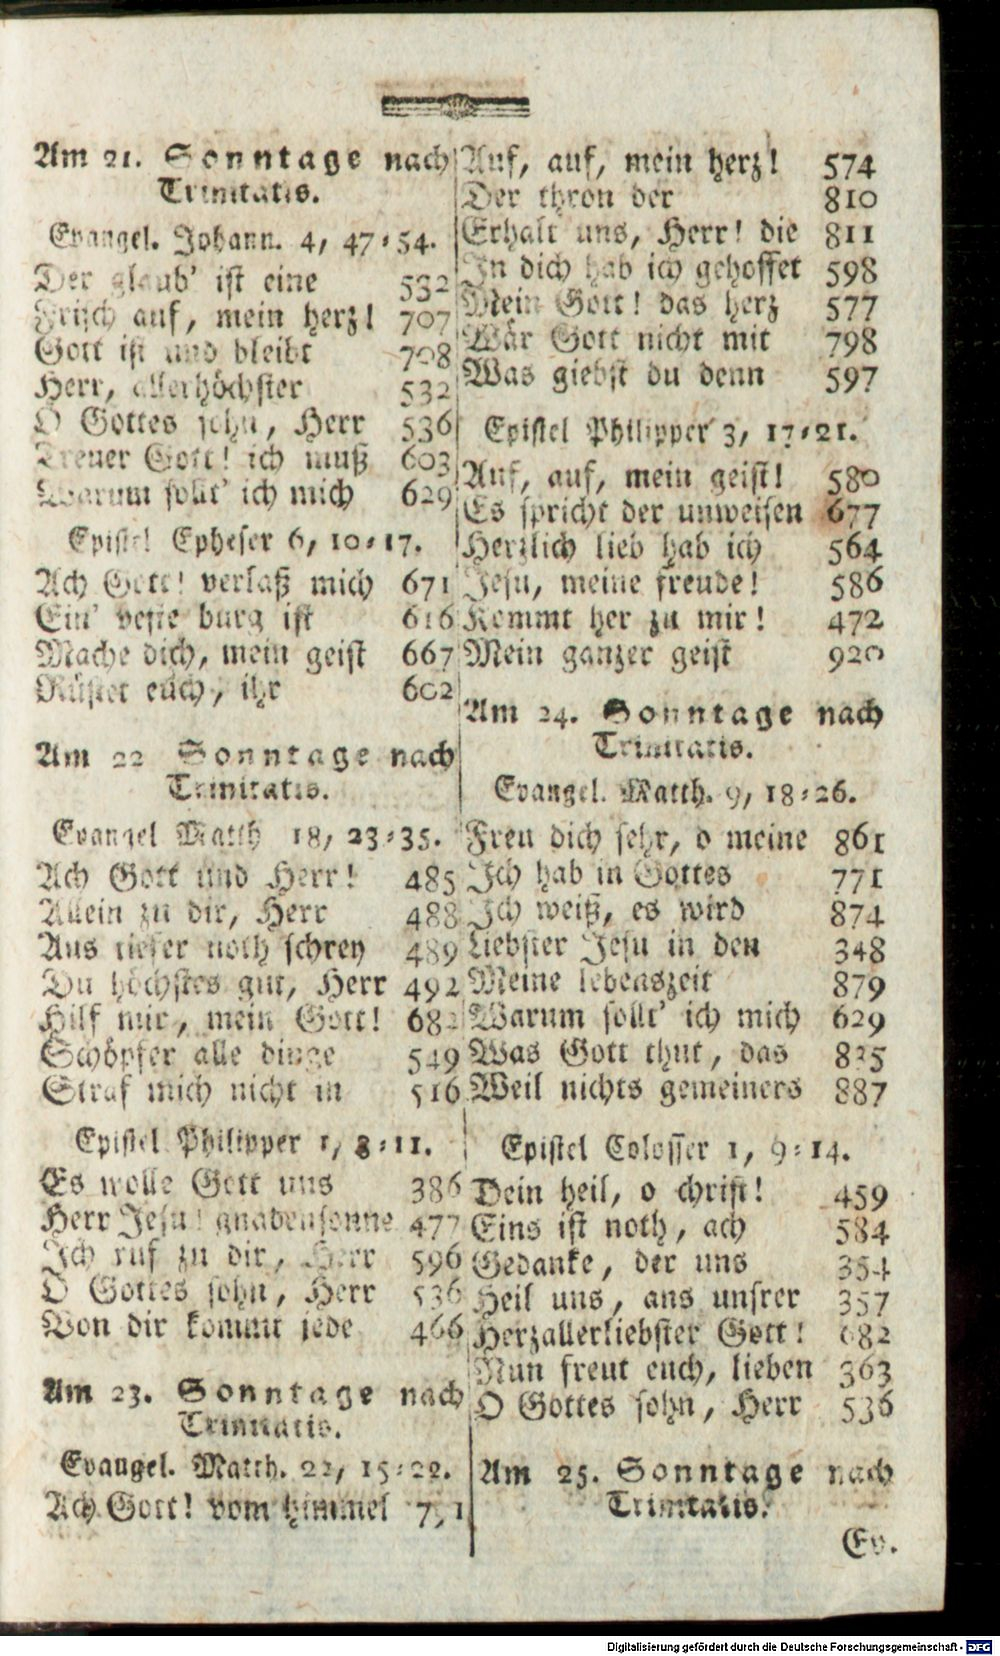 Am 21. Sonntage nach
Trinitatis.
Evangel. Johann. 4, 47=54.
Der glaub' ist eine 532
Frisch auf, mein herz! 707
Gott ist und bleibt 708
Herr, allerhöchster 532
O Gottes sohn, Herr 536
Treuer Gott! ich muß 603
Warum sollt' ich mich 629
Epistel Epheser 6, 10=17.
Ach Gott! verlaß mich 671
Ein' veste burg ist 616
Mache dich, mein geist 667
Rüstet euch, ihr 602
Am 22 Sonntage nach
Trinitatis.
Evangel Matth 18, 23=35.
Ach Gott und Herr! 485
Allein zu dir, Herr 488
Aus tiefer noth schrey 489
Du höchstes gut, Herr 492
Hilf mir, mein Gott! 682
Schöpfer alle dinge 549
Straf mich nicht in 516
Epistel Philipper 1, 3=11.
Es wolle Gott uns 386
Herr Jesu! gnadensonne 477
Ich ruf zu dir, Herr 596
O Gottes sohn, Herr 536
Von dir kommt jede 466
Am 23. Sonntage nach
Trinitatis.
Evangel. Matth. 22, 15=22.
Ach Gott! vom himmel
Auf, auf, mein herz! 574
Der thron der 810
Erhalt uns, Herr! die 811
In dich hab ich gehoffet 598
Mein Gott! das herz 577
Wär Gott nicht mit 798
Was giebst du denn 597
Epistel Philipper 3, 17=21.
Auf, auf, mein geist! 580
Es spricht der unweisen 677
Herzlich lieb hab ich 564
Jesu, meine freude! 586
Kommt her zu mir! 472
Mein ganzer geist 920
Am 24. Sonntage nach
Trinitatis.
Evangel. Matth. 9, 18=26.
Freu dich sehr, o meine 861
Ich hab in Gottes 771
Ich weiß, es wird 874
Liebster Jesu in den 348
Meine lebenszeit 879
Warum sollt' ich mich 629
Was Gott thut, das 835
Weil nichts gemeiners 887
Epistel Colosser 1, 9=14.
Dein heil, o christ! 459
Eins ist noth, ach 584
Gedanke, der uns 354
Heil uns, aus unsrer 357
Herzallerliebster Gott! 682
Nun freut euch, lieben 363
O Gottes sohn, Herr 536
Am 25. Sonntage nach
Trinitatis.
Ev.
Digitalisierung gefördert durch die Deutsche Forschungsgemeinschaft - DFG